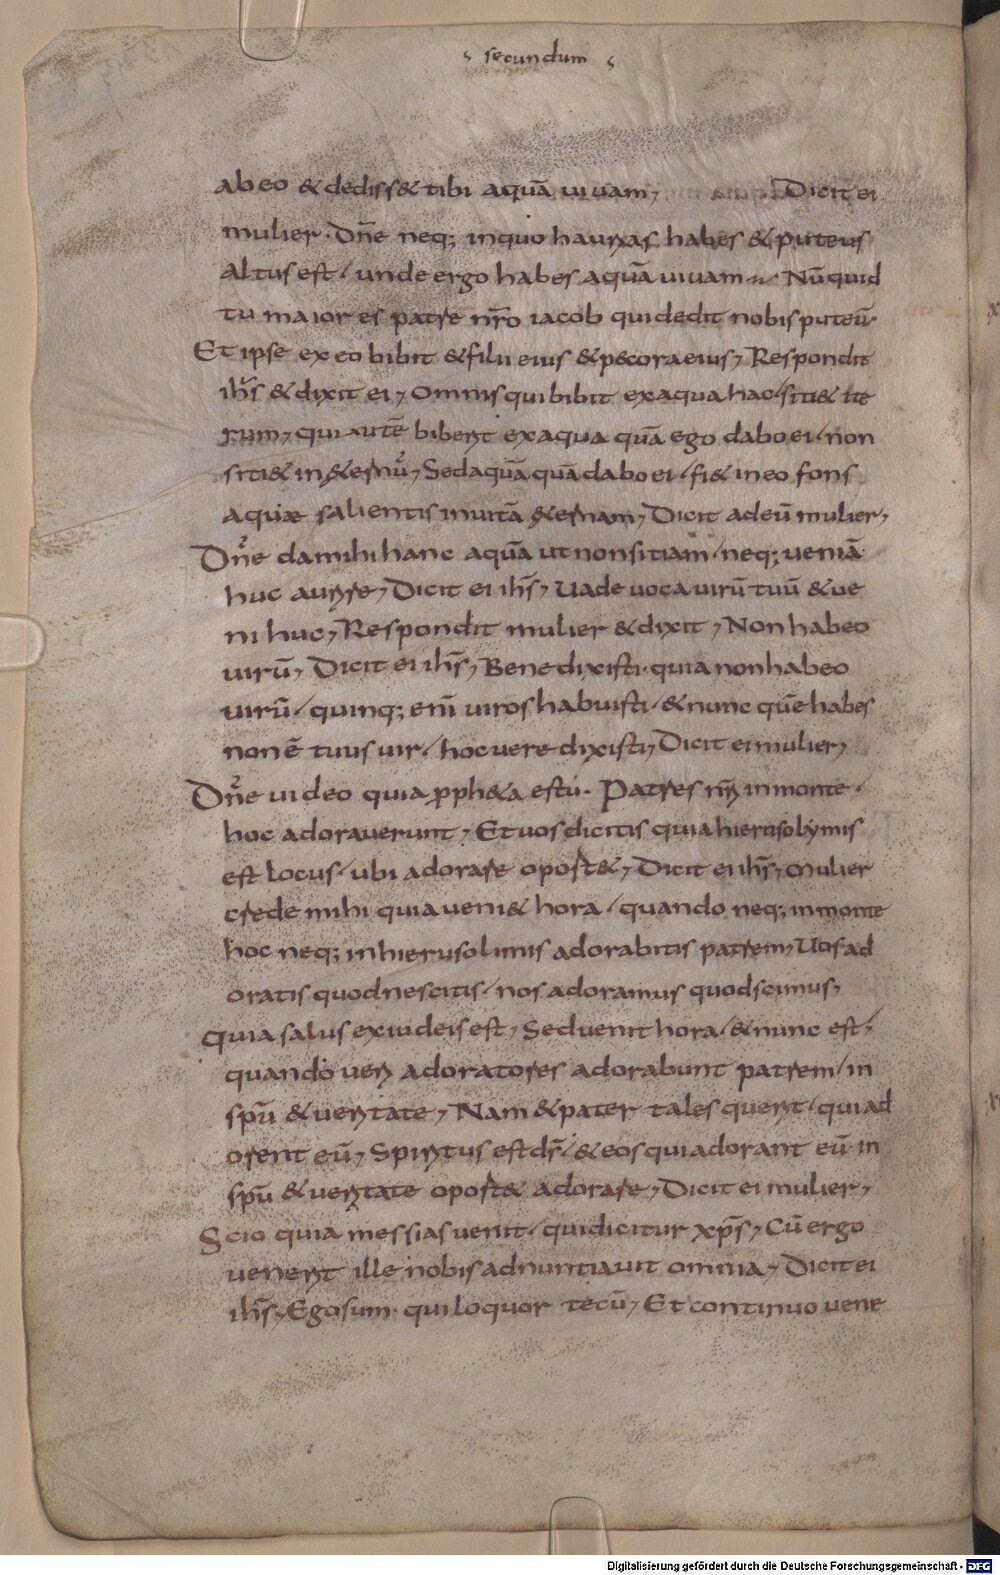 secundum
ab eo & dediss& tibi aquā uiuam, Dicit ei
mulier. Dn̄e neq; inquo haurias habes & puteus
altus est, unde ergo habes aquā uiuam Nūquid
tu maior es patre nr̄o iacob qui dedit nobis puteū.
Et ipse ex eo bibit & filii eius & p&cora eius, Respondit
ih̄s & dixit ei, Omnis qui bibit ex aqua hac, siti& ite
rum, qui autē biberit ex aqua quā ego dabo ei, non
siti& in &ernū, Sed aquā quā dabo ei, fi& in eo fons
aquæ salientis in uitā &ernam, Dicit ad eū mulier,
Dn̄e da mihi hanc aquā ut non sitiam, neq; ueniā
huc aurire, Dicit ei ih̄s, Uade uoca uirū tuū & ue
ni huc, Respondit mulier & dixit, Non habeo
uirū, Dicit ei ih̄s, Bene dixisti. quia non habeo
uirū, quinq; eni̅ uiros habuisti, & nunc quē habes
non ē tuus uir, hoc uere dixisti, Dicit ei mulier,
Dn̄e uideo quia pph&a es tu. Patres nr̄i in monte
hoc adorauerunt, Et uos dicitis quia hierusolymis
est locus, ubi adorare oport&, Dicit ei ih̄s, Mulier
crede mihi quia ueni& hora, quando neq; in monte
hoc neq; in hierusolimis adorabitis patrem, Uos ad
oratis quod nescitis, nos adoramus quod scimus,
Quia salus ex iudeis est, Sed uenit hora, & nunc est,
quando ueri adoratores adorabunt patrem, in
sp̄u & ueritate, Nam & pater tales querit, qui ad
orent eū, Spiritus est ds̄, & eos qui adorant eū in
sp̄u & ueritate oport& adorare, Dicit ei mulier,
Scio quia messias uenit, qui dicitur xp̄s, Cū ergo
uenerit ille nobis adnuntiauit omnia, Dicit ei
ih̄s, Ego sum. qui loquor tecū, Et continuo uene
Digitalisierung gefördert durch die Deutsche Forschungsgemeinschaft - DFG